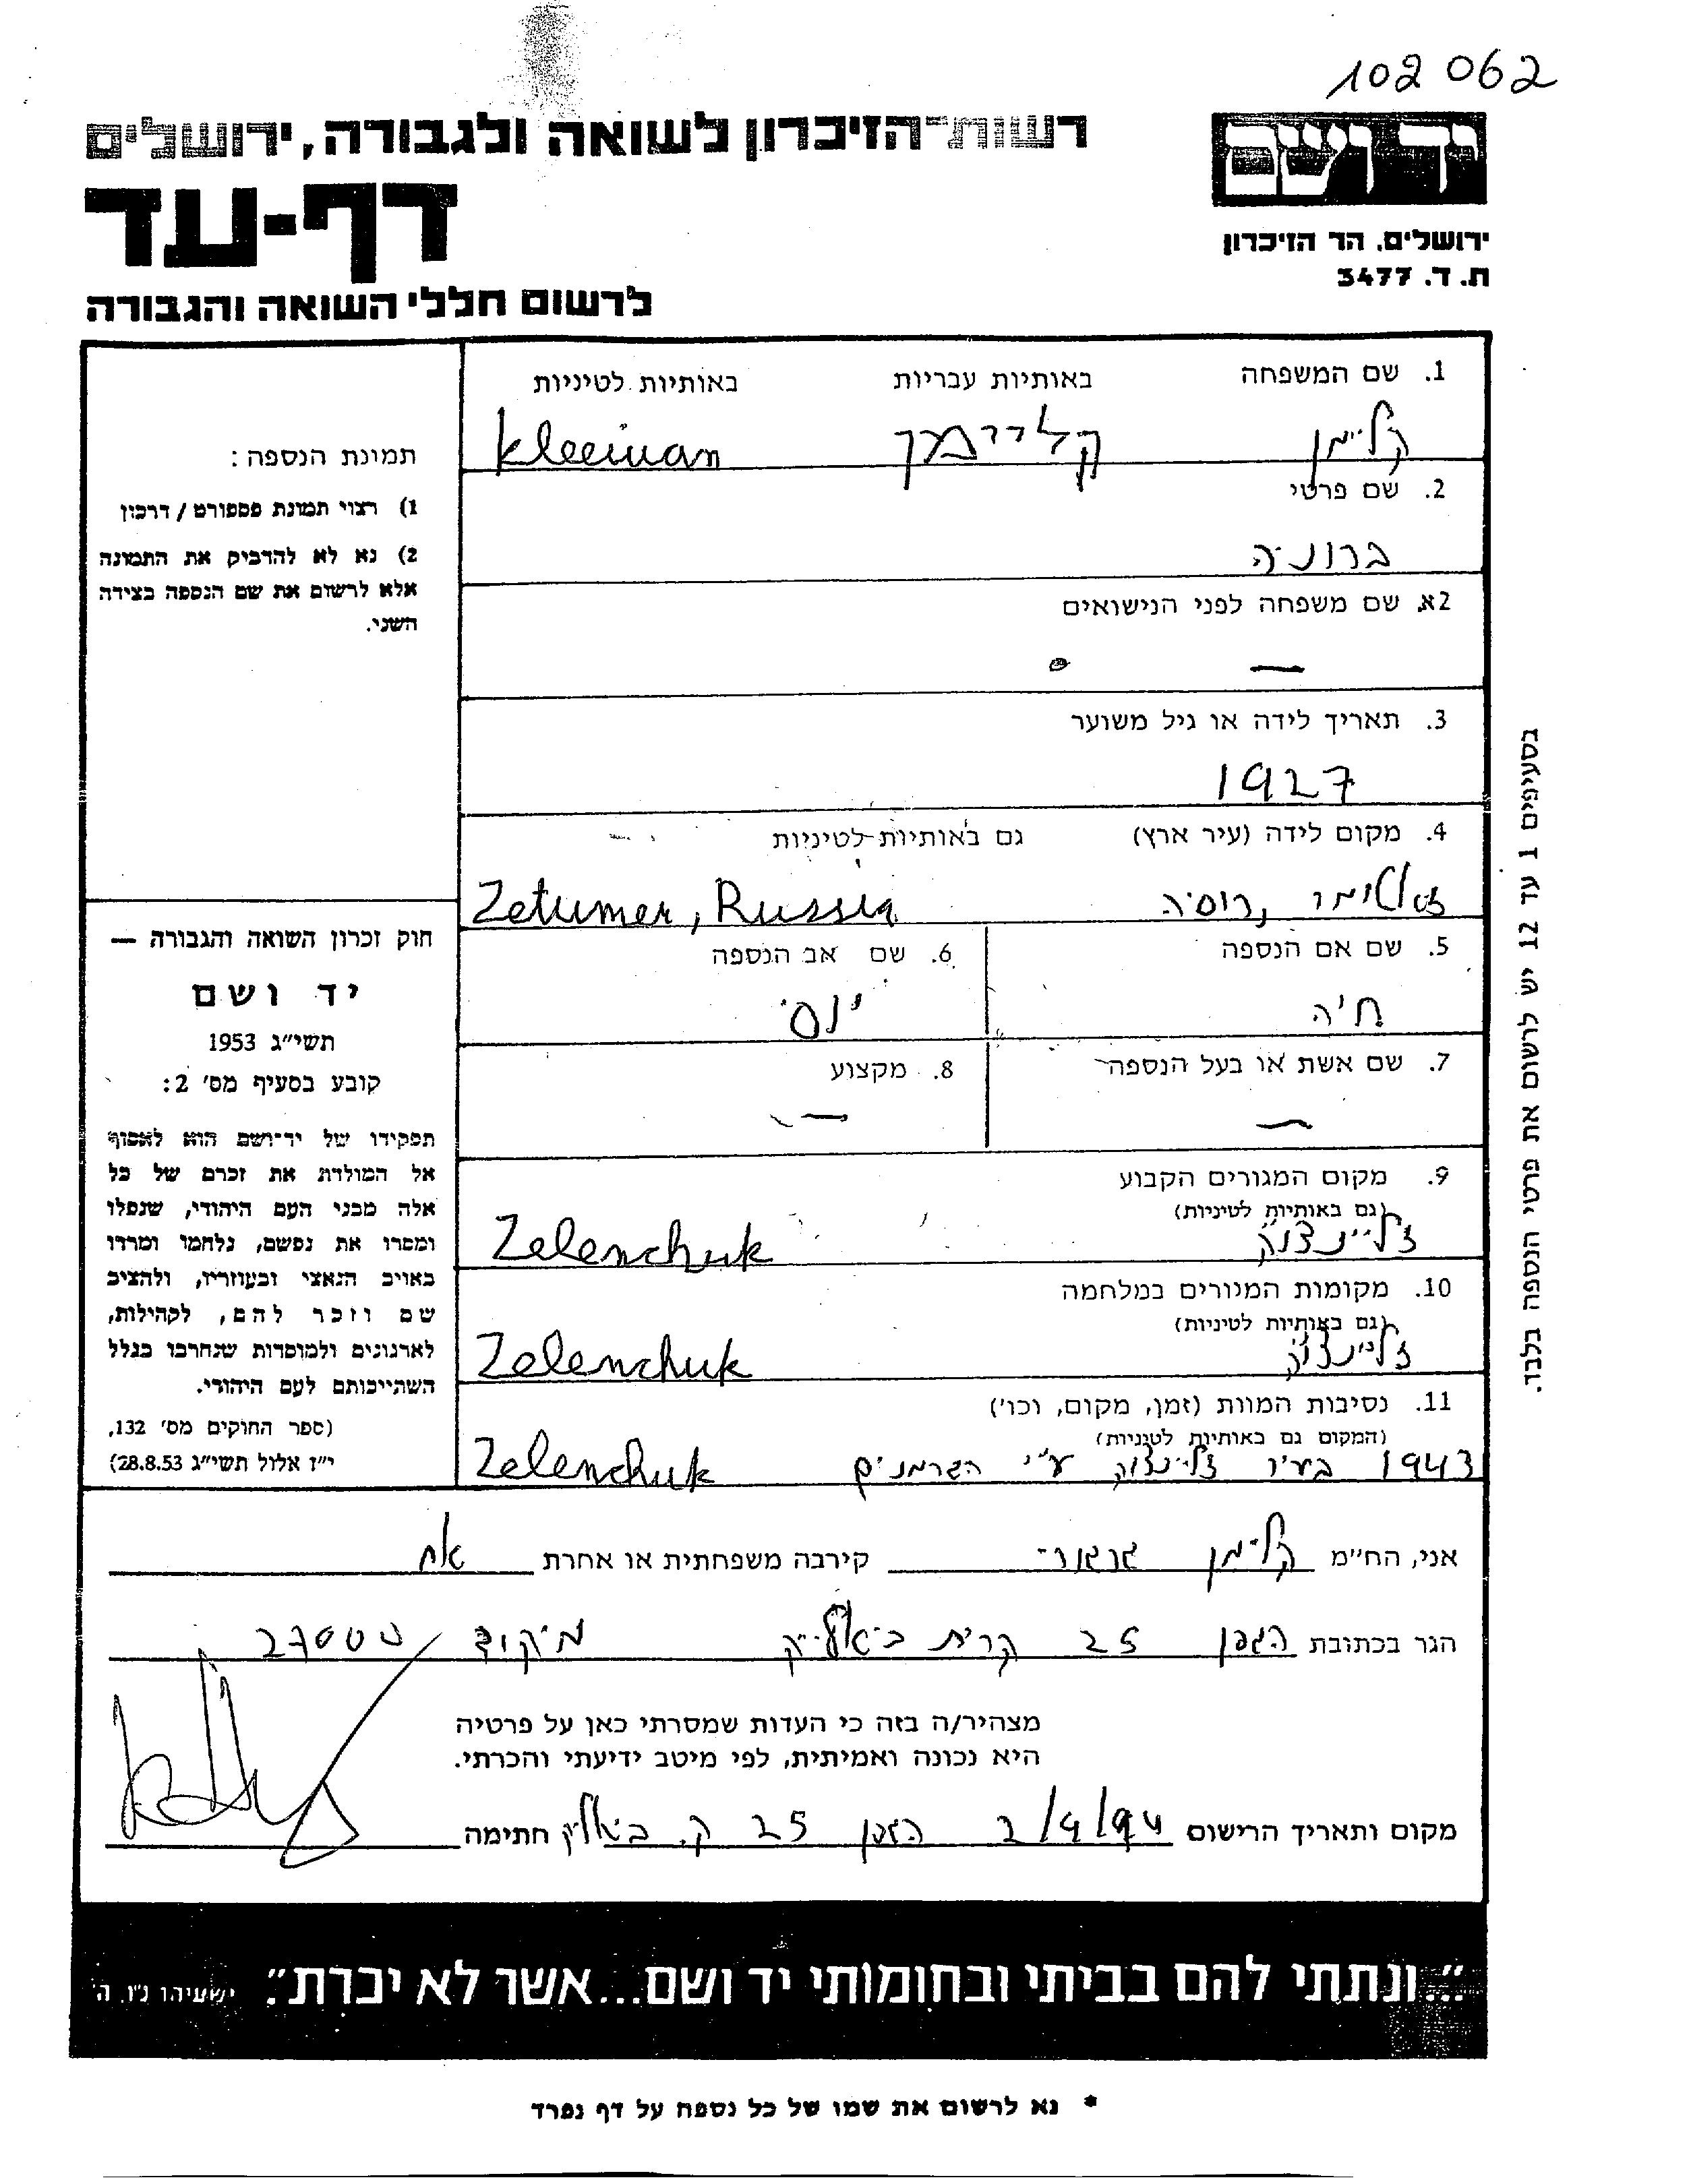 102 062
רשות־הזיכרון לשואה ולגבורה, ירושלים
יד ושם
דף-עד
ירושלים, הר הזיכרון
ת. ד. 3477
לרשום חללי השואה והגבורה
1. שם המשפחה באותיות עבריות באותיות לטיניות
קליימן קליימן Kleeiman
2. שם פרטי
ברוניה
2א. שם משפחה לפני הנישואים
—
3. תאריך לידה או גיל משוער
1927
4. מקום לידה (עיר ארץ) גם באותיות לטיניות
רוסיה Zetumer, Russia
5. שם אם הנספה 6. שם אב הנספה
חיה יוסי
7. שם אשת או בעל הנספה 8. מקצוע
— —
9. מקום המגורים הקבוע
(גם באותיות לטיניות)
זליינצוק Zelenchuk
10. מקומות המגורים במלחמה
(גם באותיות לטיניות)
זליינצוק Zelenchuk
11. נסיבות המוות (זמן, מקום, וכו')
(המקום גם באותיות לטיניות)
1943 בעיר זליינצוק ע"י הגרמנים Zelenchuk
תמונת הנספה:
1) רצוי תמונת פספורט / דרכון
2) נא לא להדביק את התמונה
אלא לרשום את שם הנספה בצידה
השני.
חוק זכרון השואה והגבורה —
יד ושם
תשי"ג 1953
קובע בסעיף מס' 2:
תפקידו של יד־ושם הוא לאסוף
אל המולדת את זכרם של כל
אלה מבני העם היהודי, שנפלו
ומסרו את נפשם, נלחמו ומרדו
באויב הנאצי ובעוזריו, ולהציב
שם וזכר להם, לקהילות,
לארגונים ולמוסדות שנחרבו בגלל
השתייכותם לעם היהודי.
(ספר החוקים מס' 132,
י"ז אלול תשי"ג 28.8.53)
בסעיפים 1 עד 12 יש לרשום את פרטי הנספה בלבד.
אני, הח"מ קליימן קירבה משפחתית או אחרת אח
הגר בכתובת הגפן 25 קרית ביאליק מיקוד 27000
מצהיר/ה בזה כי העדות שמסרתי כאן על פרטיה
היא נכונה ואמיתית, לפי מיטב ידיעתי והכרתי.
מקום ותאריך הרישום 2/4/94 הגפן 25 ק. ביאליק חתימה
"...ונתתי להם בביתי ובחומותי יד ושם...אשר לא יכרת". ישעיהו נ"ו, ה'
* נא לרשום את שמו של כל נספה על דף נפרד